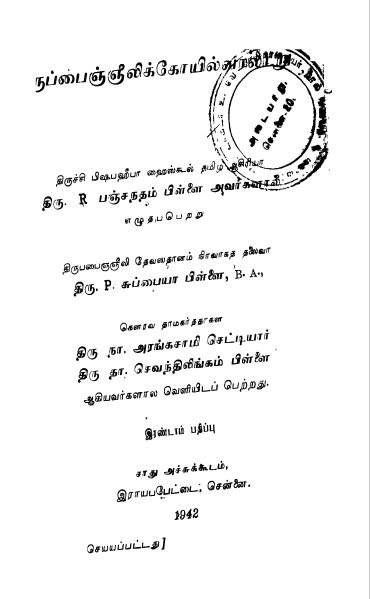 நப்பைஞ்ஞீலிக்கோயில்வரலாறு
அடையாறு,
சென்னை.20.
திருச்சி பிஷபஹீபா ஹைஸ்கூல் தமிழ ஆசிரியா
திரு. R பஞ்சநதம் பிள்ளை அவர்களால்
எழுதபபெற்று
திருபபைஞ்ஞீலி தேவஸதானம் நிர்வாகத தலைவா
திரு. P. சுப்பையா பிள்ளை, B. A.,
கௌரவ தாமகர்ததாகள
திரு நா. அரங்கசாமி செட்டியார்
திரு தா. செவந்திலிங்கம் பிள்ளை
ஆகியவர்களால வெளியிடப் பெற்றது.
இரண்டாம் பதிப்பு
சாது அச்சுக்கூடம்,
இராயபபேட்டை, சென்னை.
1942
செயயப்பட்டது]